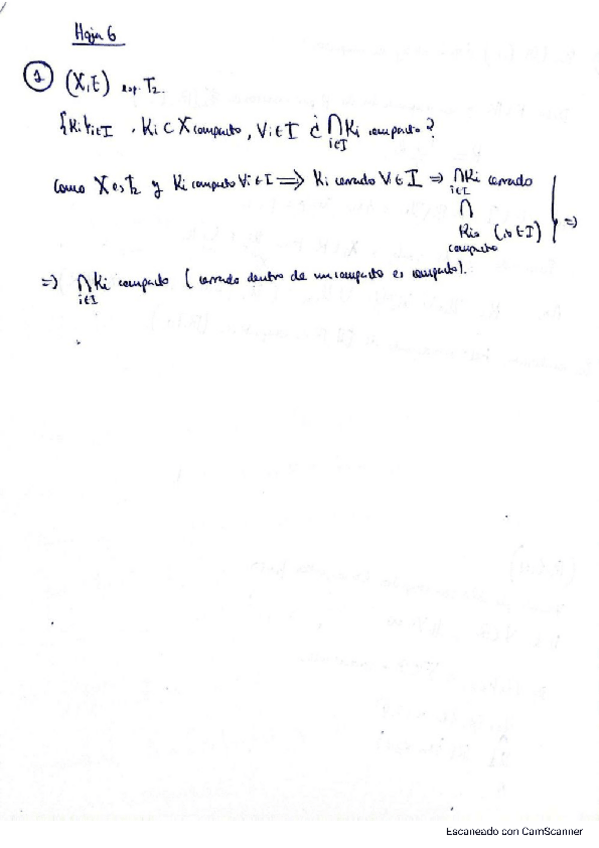 Hoja 6
① (X,τ) esp. T₂.
{Ki}i∈I , Ki ⊂ X compacto, ∀i∈I ¿ ⋂i∈I Ki compacto?
Como X es T₂ y Ki compacto ∀i∈I ⟹ Ki cerrado ∀i∈I ⇒ ⋂i∈I Ki cerrado
∩
Ki₀ (i₀∈I) ⇒
compacto
⇒ ⋂i∈I Ki compacto (cerrado dentro de un compacto es compacto).
Escaneado con CamScanner